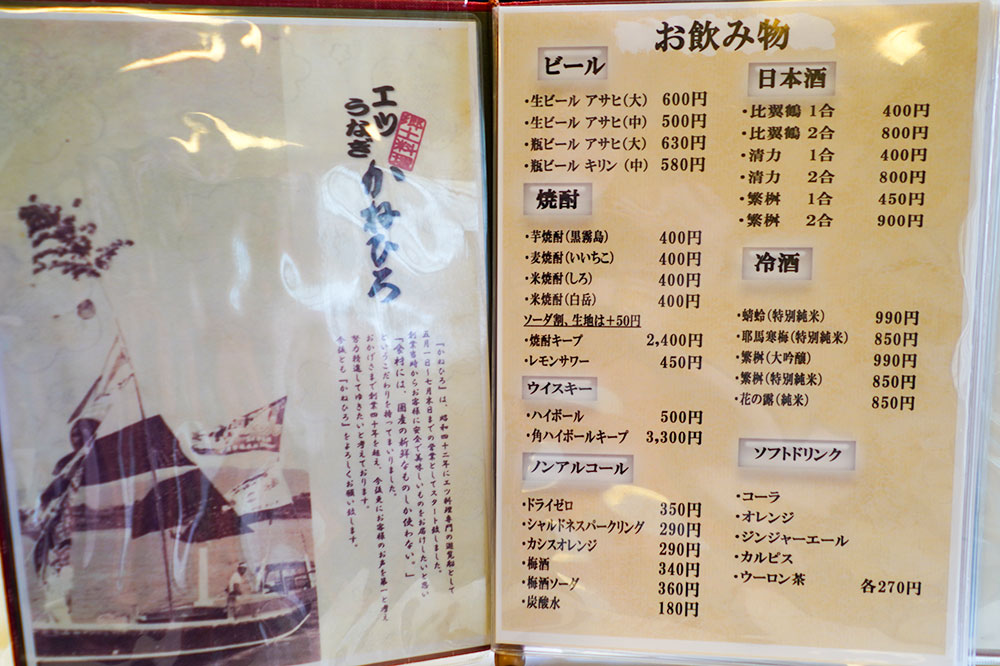 エツ
うなぎ
郷土料理
かねひろ
『かねひろ』は、昭和四十二年にエツ料理専門の遊覧船として
五月一日～七月末日までの営業としてスタート致しました。
創業当時からお客様に安全で美味しいものをお届けしたいと思い
『食材には、国産の新鮮なものしか使わない。』
というこだわりを持ってまいりました。
おかげさまで創業四十年を超え、今後更にお客様のお声を第一と考え
努力精進してゆきたいと考えております。
今後とも『かねひろ』をよろしくお願い致します。
お飲み物
ビール
・生ビール アサヒ(大) 600円
・生ビール アサヒ(中) 500円
・瓶ビール アサヒ(大) 630円
・瓶ビール キリン (中) 580円
焼酎
・芋焼酎(黒霧島) 400円
・麦焼酎(いいちこ) 400円
・米焼酎(しろ) 400円
・米焼酎(白岳) 400円
ソーダ割、生地は＋50円
・焼酎キープ 2,400円
・レモンサワー 450円
ウイスキー
・ハイボール 500円
・角ハイボールキープ 3,300円
ノンアルコール
・ドライゼロ 350円
・シャルドネスパークリング 290円
・カシスオレンジ 290円
・梅酒 340円
・梅酒ソーダ 360円
・炭酸水 180円
日本酒
・比翼鶴 1合 400円
・比翼鶴 2合 800円
・清力 1合 400円
・清力 2合 800円
・繁桝 1合 450円
・繁桝 2合 900円
冷酒
・蜻蛉(特別純米) 990円
・耶馬寒梅(特別純米) 850円
・繁桝(大吟醸) 990円
・繁桝(特別純米) 850円
・花の露(純米) 850円
ソフトドリンク
・コーラ
・オレンジ
・ジンジャーエール
・カルピス
・ウーロン茶 各270円